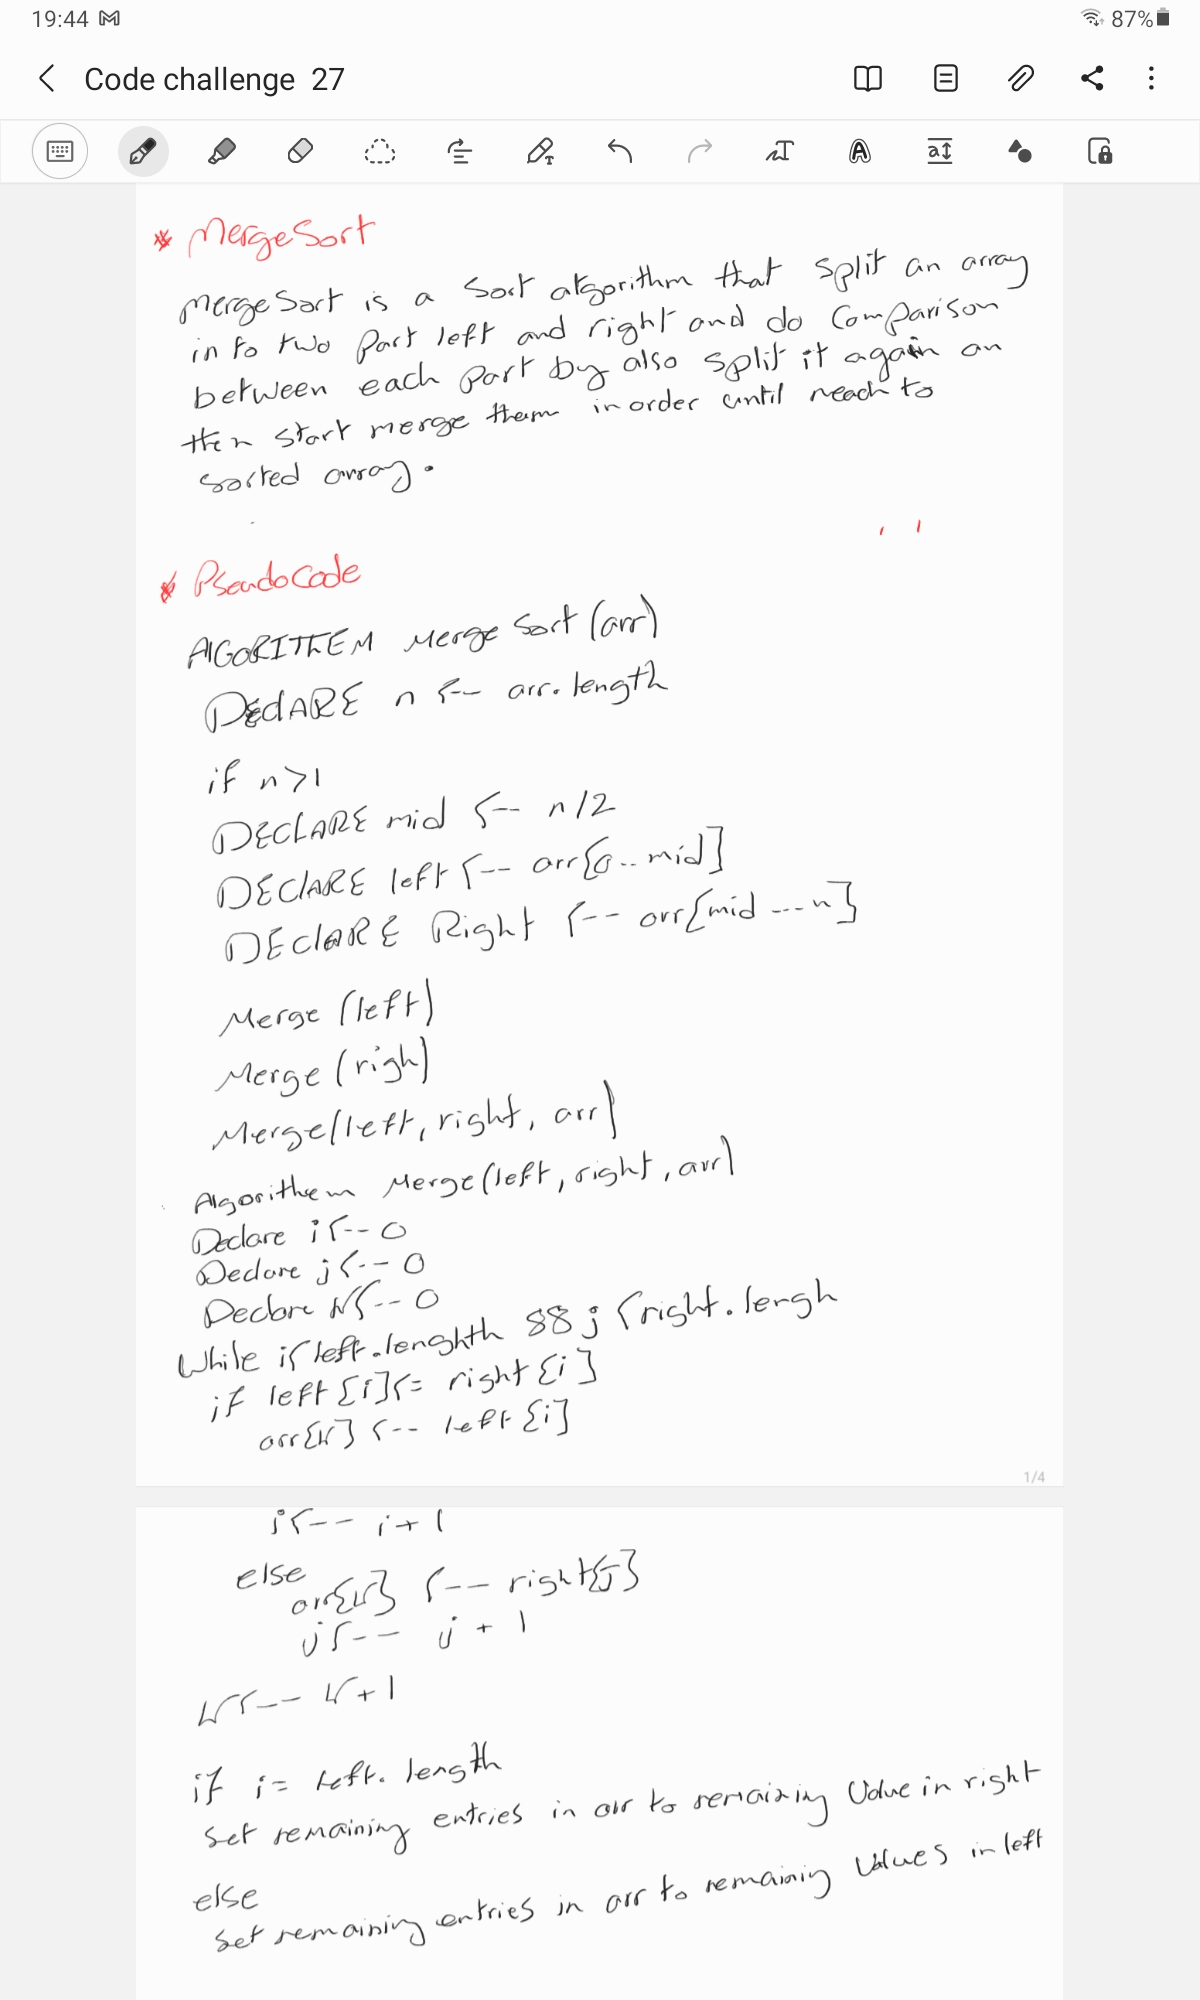 19:44
87%
Code challenge 27
* MergeSort
MergeSort is a Sort algorithm that split an array
into two Part left and right and do Comparison
between each Part by also split it again an
then start merge them in order until reach to
Sorted array.
* PseudoCode
AlGORITHEM Merge Sort (arr)
DEClARE n <-- arr.length
if n>1
DECLARE mid <-- n/2
DEClARE left <-- arr[0...mid]
DEClARE Right <-- arr[mid...n]
Merge (left)
Merge (righ)
Merge (left, right, arr)
Algorithem Merge(left, right, arr)
Declare i<-- 0
Declare j<-- 0
Declare K<-- 0
While i< left.lenghth && j < right.lengh
if left [i]<= right [i]
arr[K] <-- left [i]
1/4
i<-- i+1
else
arr[K] <-- right[j]
j<-- j + 1
K<-- K+1
if i= left. length
Set remaining entries in arr to remaining Value in right
else
Set remaining entries in arr to remaining Values in left